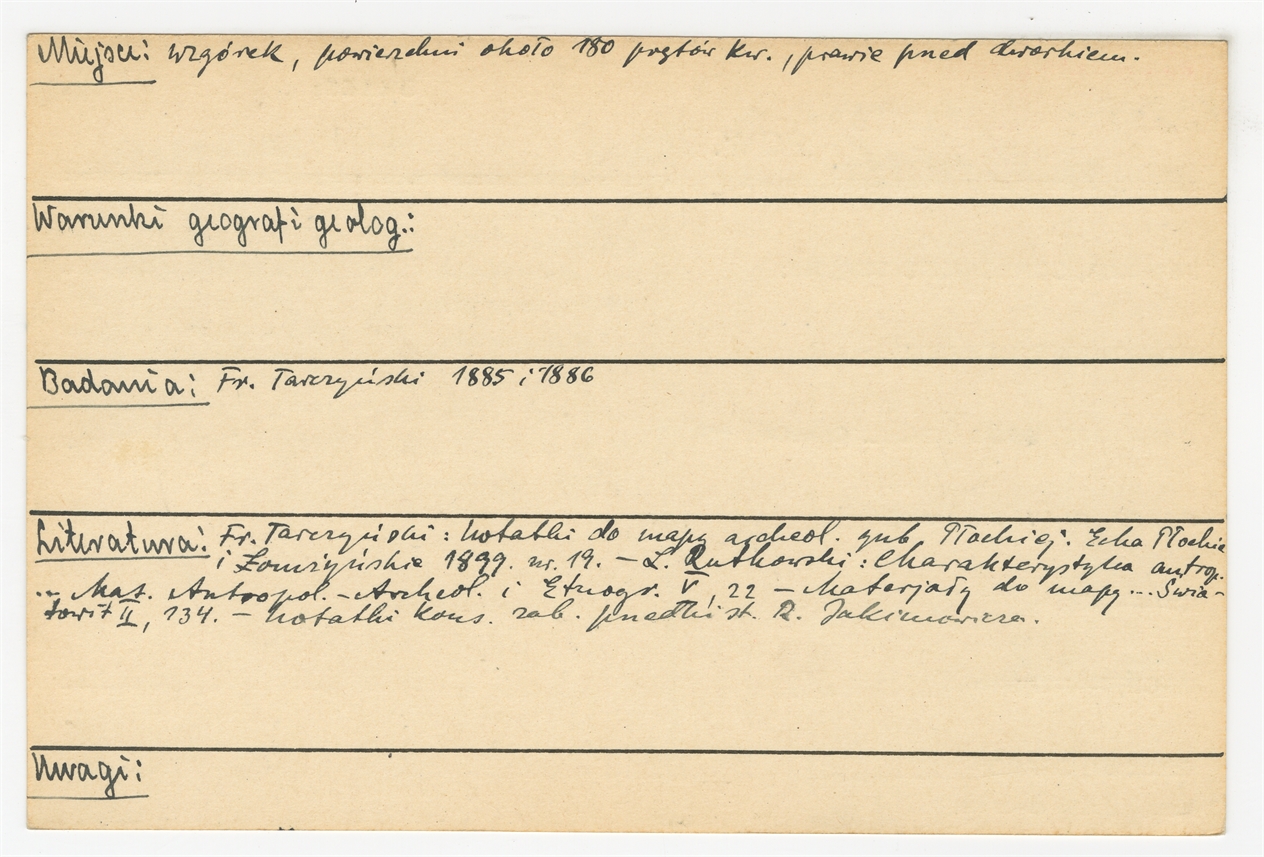 Miejsce: wzgórek, powierzchni około 180 prętów kw., prawie przed dworkiem.
Warunki geograf i geolog.:
Badania: Fr. Tarczyński 1885 i 1886
Literatura: Fr. Tarczyński: Notatki do mapy archeol. gub Płockiej. Echa Płockie
i Łomżyńskie 1899. nr. 19. – L. Rutkowski: Charakterystyka antrop.
... Mat. Antropol. – Archeol. i Etnogr. V, 22 – Materjały do mapy... Świa-
towit II, 134. – Notatki kons. zab. przedhist. R. Jakimowicza.
Uwagi: